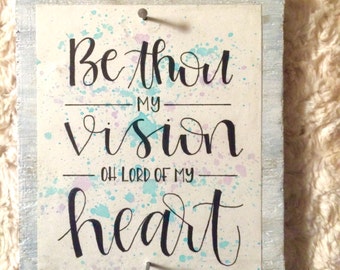 Be thou
MY
vision
OH LORD OF MY
heart